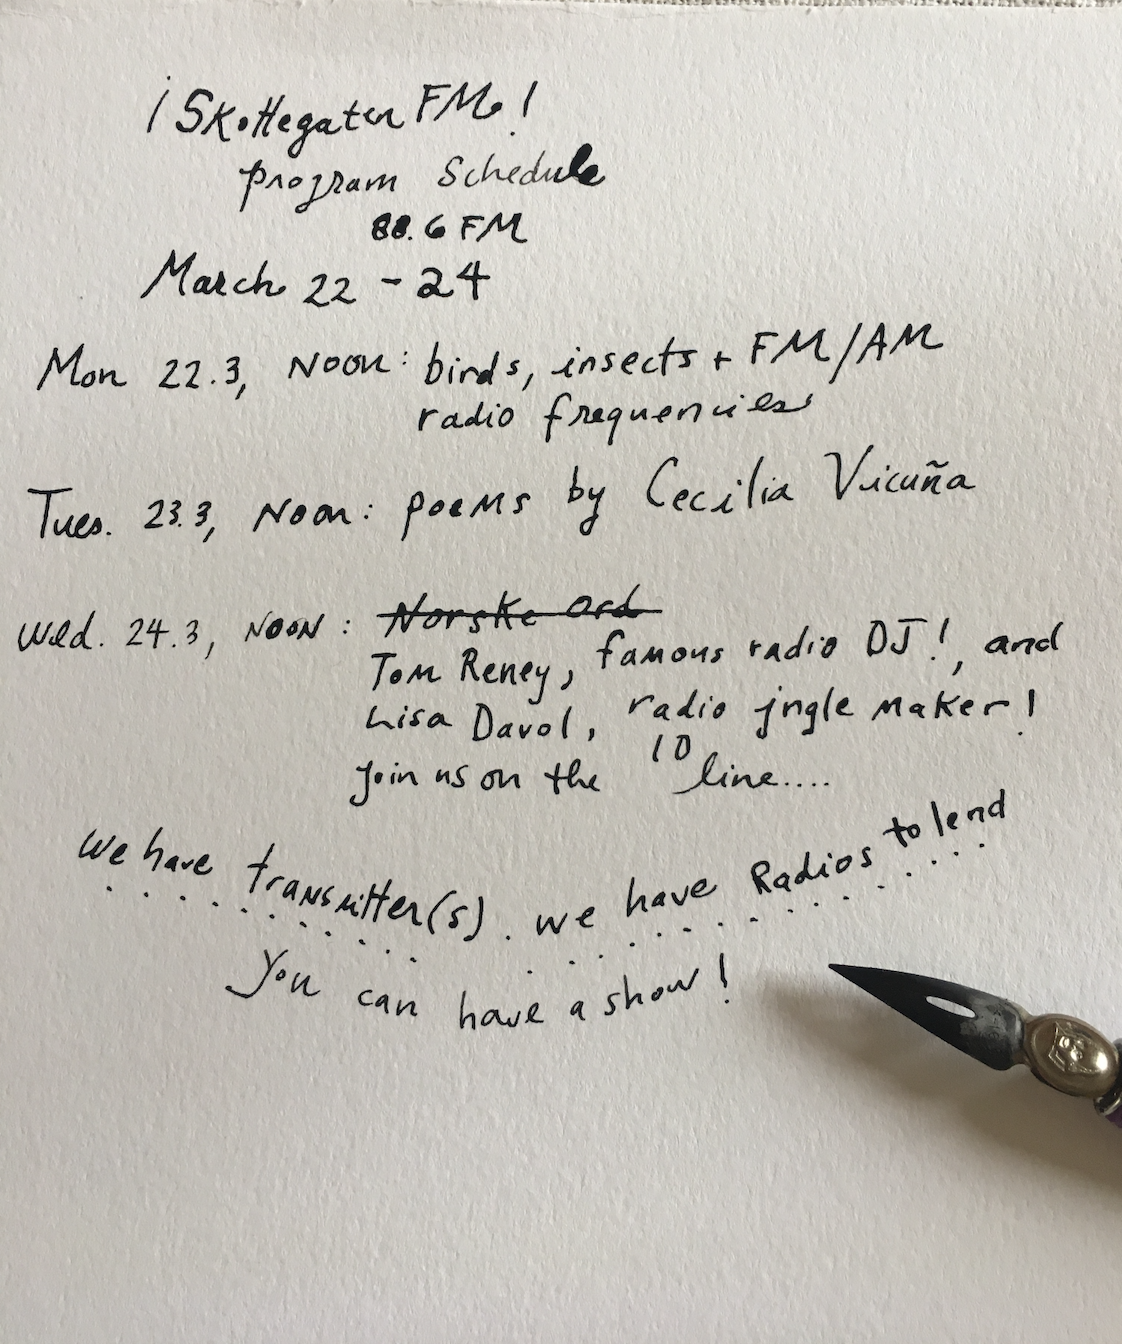 ¡Skottegaten FM!
program Schedule
88.6 FM
March 22 - 24
Mon 22.3, Noon: birds, insects + FM/AM
radio frequencies
Tues. 23.3, Noon: poems by Cecilia Vicuña
Wed. 24.3, Noon: Norske Ord
Tom Reney, famous radio DJ!, and
Lisa Davol, radio jngle maker!
Join us on the 10 line....
We have transmitter(s). we have Radios to lend
You can have a show!